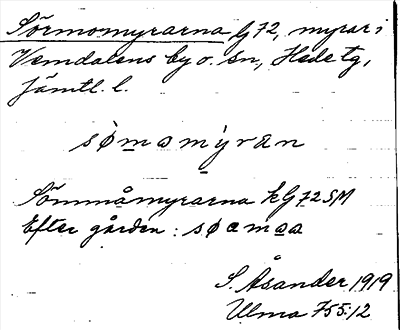 Sörmomyrarna G 72, myrar i
Vemdalens by o. sn, Hede tg,
Jämtl. l.
sømamýran
Sömmåmyrarna kG 72 SM
Efter gården: søamaa
S. Åsander 1919
Ulma 755:12